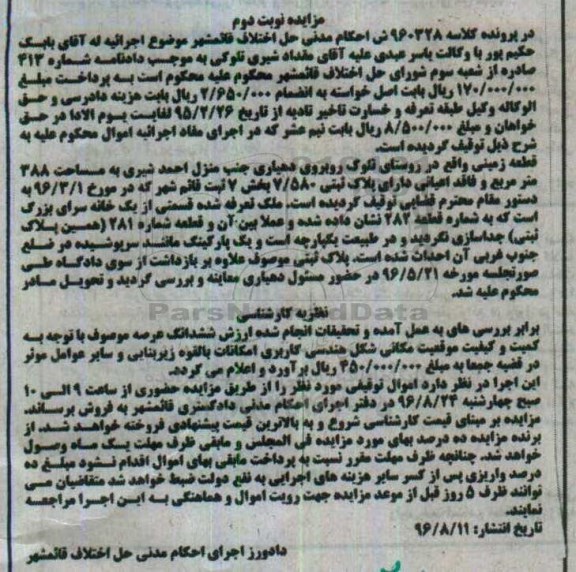 مزایده نوبت دوم
در پرونده کلاسه ۹۶۰۳۲۸ ش احکام مدنی حل اختلاف قائمشهر موضوع اجرائیه له آقای بابک
حکیم پور با وکالت یاسر عبدی علیه آقای مقداد شیری تلوکی به موجب دادنامه شماره ۴۱۳
صادره از شعبه سوم شورای حل اختلاف قائمشهر محکوم علیه محکوم است به پرداخت مبلغ
۱۷۰/۰۰۰/۰۰۰ ریال بابت اصل خواسته به انضمام ۲/۶۵۰/۰۰۰ ریال بابت هزینه دادرسی و حق
الوکاله وکیل طبقه تعرفه و خسارت تاخیر تادیه از تاریخ ۹۵/۲/۲۶ لغایت یوم الادا در حق
خواهان و مبلغ ۸/۵۰۰/۰۰۰ ریال بابت نیم عشر که در اجرای مفاد اجرائیه اموال محکوم علیه به
شرح ذیل توقیف گردیده است.
قطعه زمینی واقع در روستای تلوک روبروی دهیاری جنب منزل احمد شیری به مساحت ۳۸۸
متر مربع و فاقد اعیانی دارای پلاک ثبتی ۷/۵۸۰ بخش ۷ ثبت قائم شهر که در مورخ ۹۶/۳/۱ به
دستور مقام محترم قضایی توقیف گردیده است. ملک تعرفه شده قسمتی از یک خانه سرای بزرگ
است که به شماره قطعه ۲۸۲ نشان داده شده و عملا بین آن و قطعه شماره ۲۸۱ (همین پلاک
ثبتی) جداسازی نگردید و در طبیعت یکپارچه است و یک پارکینگ مانند سرپوشیده در ضلع
جنوب غربی آن احداث شده است. پلاک ثبتی موصوف علاوه بر بازداشت از سوی دادگاه طی
صورتجلسه مورخه ۹۶/۵/۲۱ در حضور مسئول دهیاری معاینه و بررسی گردید و تحویل مادر
محکوم علیه شد.
نظریه کارشناسی
برابر بررسی های به عمل آمده و تحقیقات انجام شده ارزش ششدانگ عرصه موصوف با توجه به
کمیت و کیفیت موقعیت مکانی شکل هندسی کاربری امکانات بالقوه زیربنایی و سایر عوامل موثر
در قضیه جمعا به مبلغ ۳۵۰/۰۰۰/۰۰۰ ریال برآورد و اعلام می گردد.
این اجرا در نظر دارد اموال توقیفی مورد نظر را از طریق مزایده حضوری از ساعت ۹ الی ۱۰
صبح چهارشنبه ۹۶/۸/۲۴ در دفتر اجرای احکام مدنی دادگستری قائمشهر به فروش برساند.
مزایده بر مبنای قیمت کارشناسی شروع و به بالاترین قیمت پیشنهادی فروخته خواهد شد. از
برنده مزایده ده درصد بهای مورد مزایده فی المجلس و مابقی ظرف مهلت یک ماه وصول
خواهد شد. چنانچه ظرف مهلت مقرر نسبت به پرداخت مابقی بهای اموال اقدام نشود مبلغ ده
درصد واریزی پس از کسر سایر هزینه های اجرایی به نفع دولت ضبط خواهد شد متقاضیان می
توانند ظرف ۵ روز قبل از موعد مزایده جهت رویت اموال و هماهنگی به این اجرا مراجعه
نمایند.
تاریخ انتشار: ۹۶/۸/۱۱
دادورز اجرای احکام مدنی حل اختلاف قائمشهر
ParsNamadData